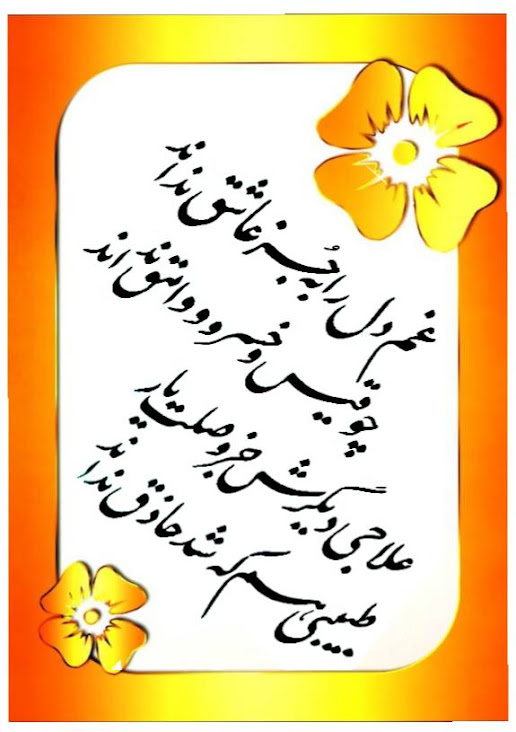 غم دل را به جُز عاشق نداند
چو قیس و خسرو و وامق نداند
علاجی دیگرش جز وصلت یار
طبیبی هم که شد حاذق نداند